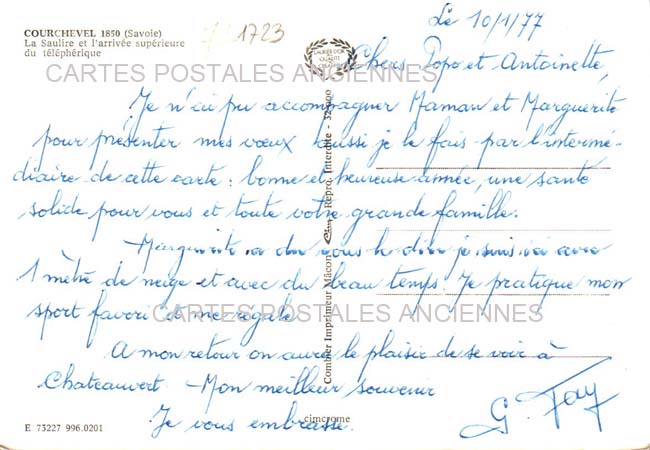 COURCHEVEL 1850 (Savoie)
La Saulire et l'arrivée supérieure
du téléphérique
1723
Le 10/1/77
Chers Popo et Antoinette,
CARTES POSTALES ANCIENNES
Je n'ai pu accompagner Maman et Marguerite
pour présenter mes vœux aussi je le fais par l'intermé-
diaire de cette carte : bonne et heureuse année, une santé
solide pour vous et toute votre grande famille.
Marguerite a du vous le dire je suis ici avec
1 mètre de neige et avec du beau temps. Je pratique mon
sport favori et me régale
CARTES POSTALES ANCIENNES
A mon retour on aura le plaisir de se voir à
Chateauvert - Mon meilleur souvenir
Je vous embrasse.
G. Fay
Combier Imprimeur Mâcon Cim Repro. Interdite -
cimcrome
E 73227 996.0201